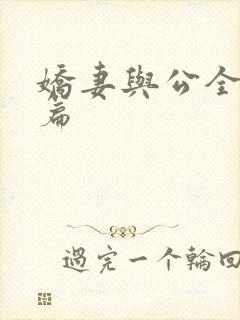 嬌妻與公全
篇
過完一个輪回